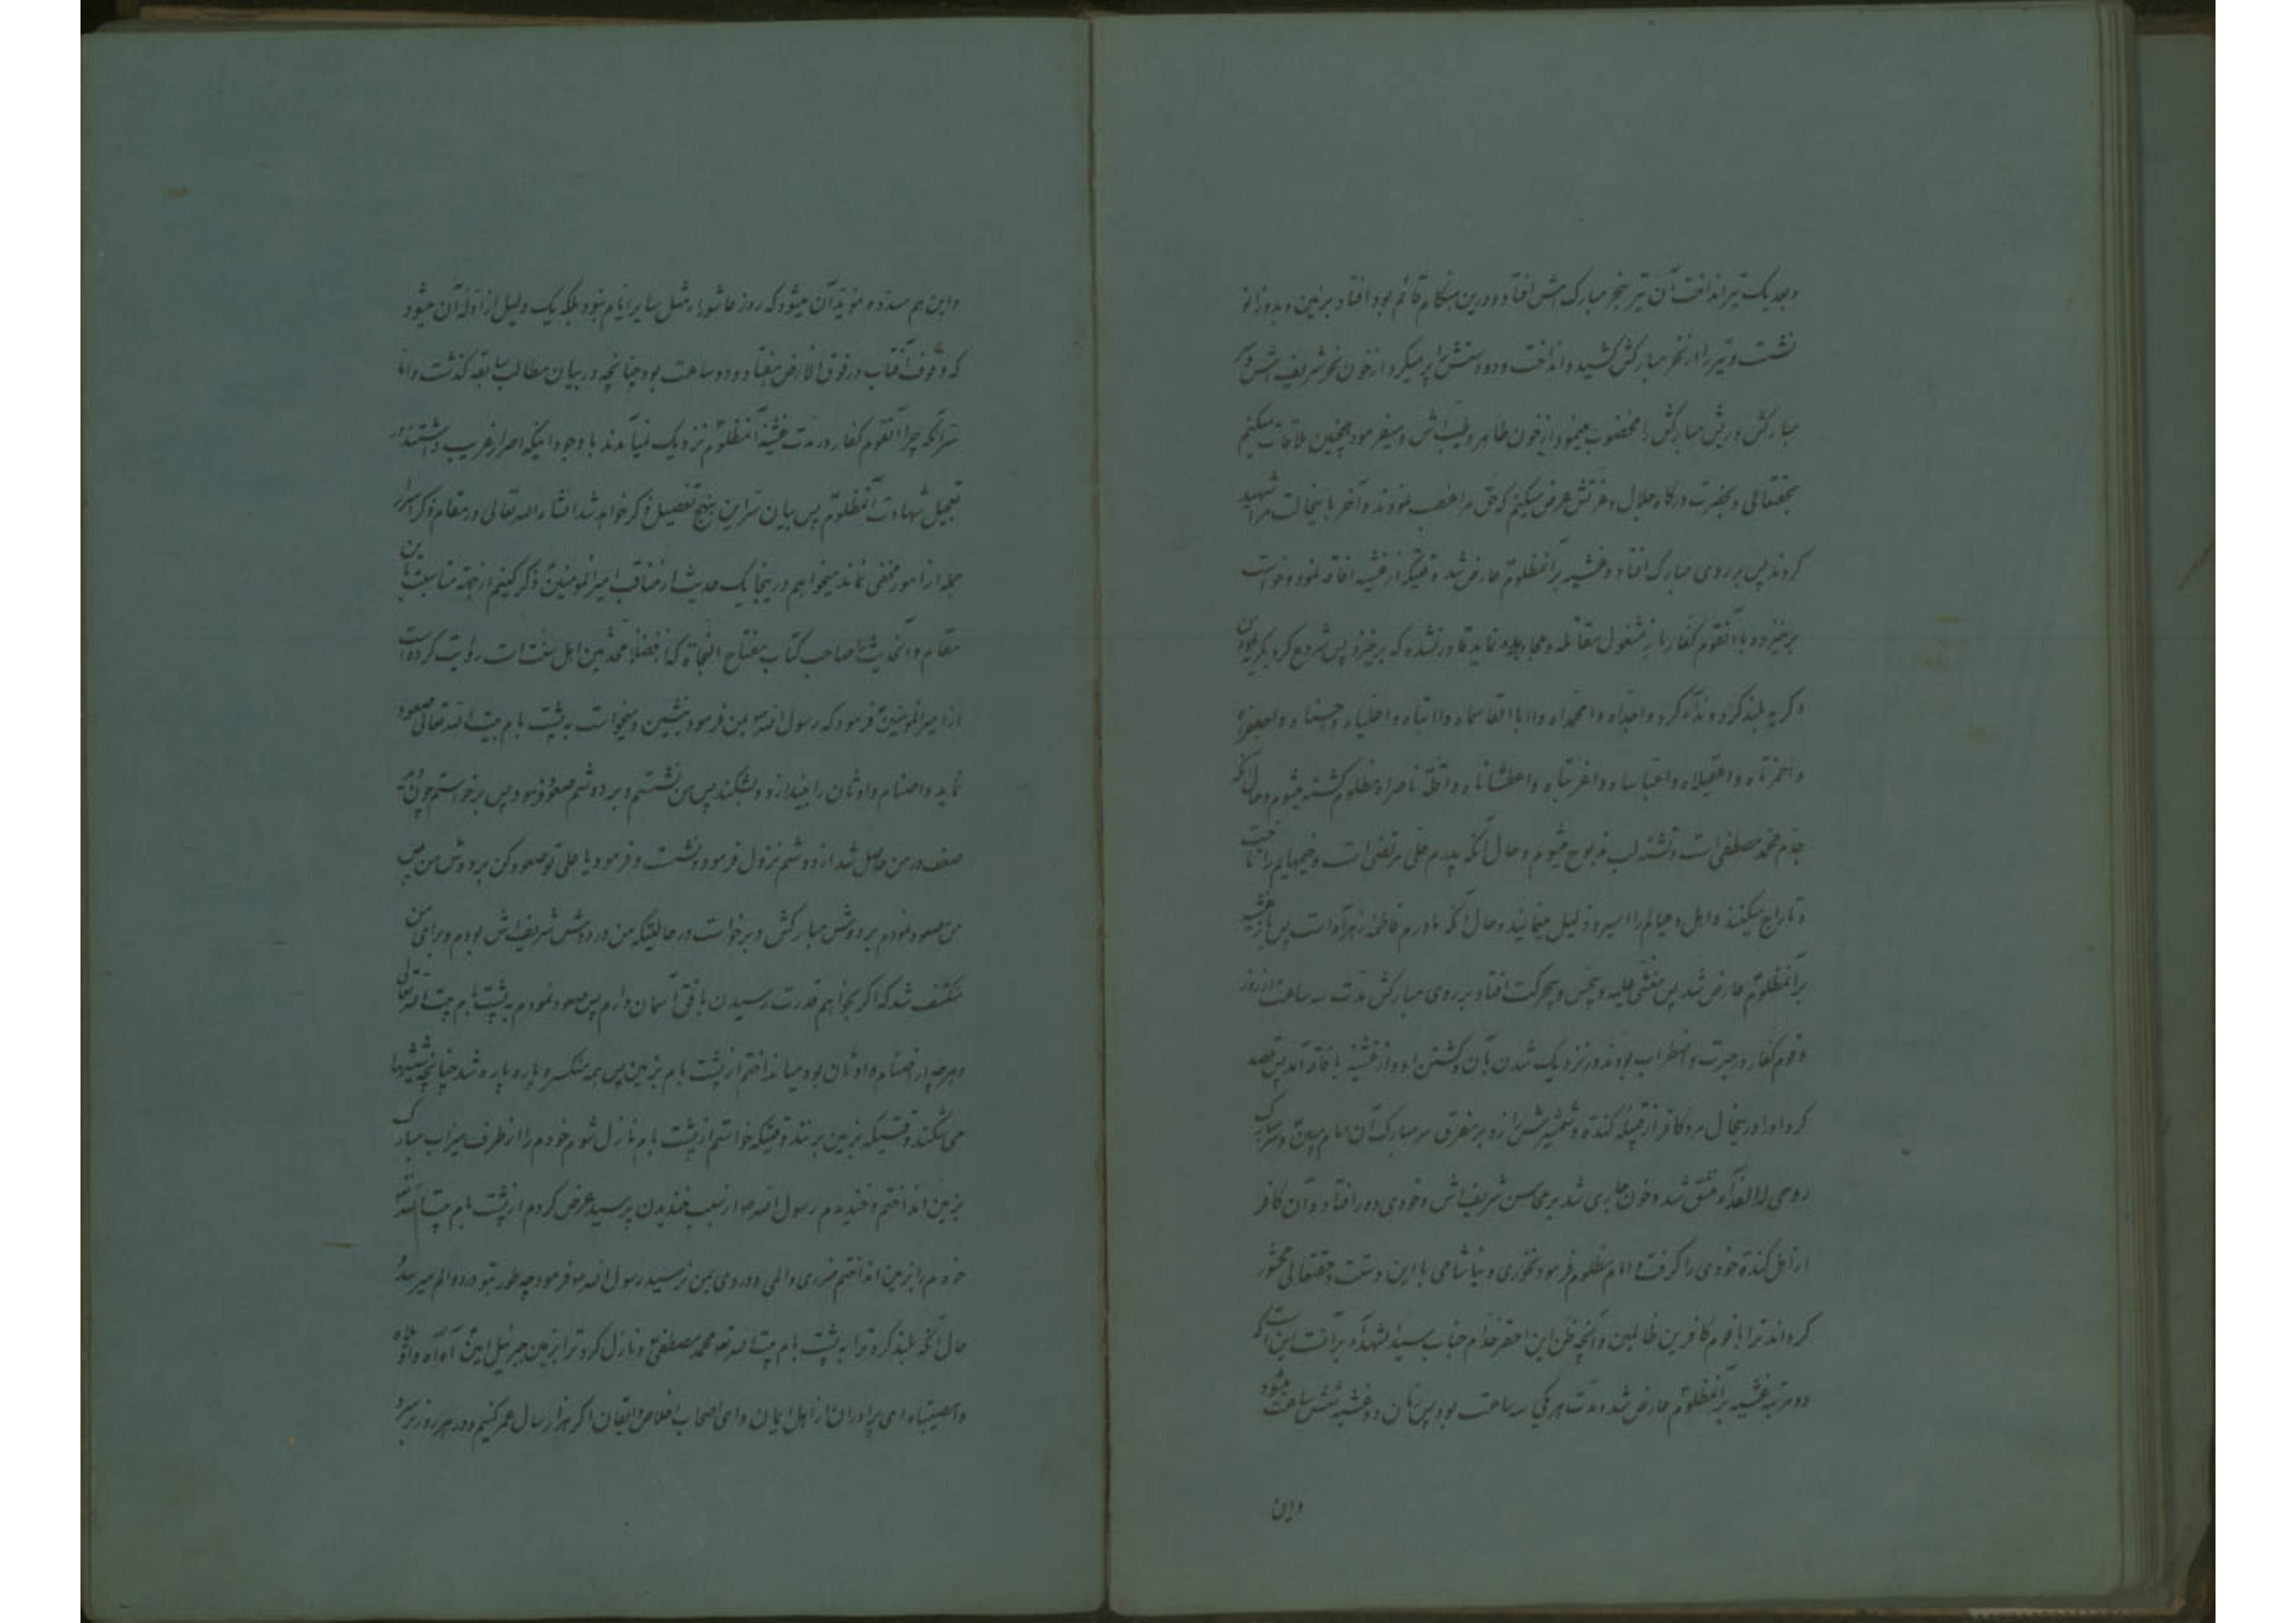 وبعد یک تیر انداخت آن تیر بنحر مبارکش افتاد و درین هنکام قائم بود افتاد بر زمین و بدو زانو
نشست و تیر را از نحر مبارکش کشید و انداخت و دو دستش را پر میکرد از خون نحر شریفش و سر
مبارکش و ریش مبارکش را مخضوب مینمود از خون طاهر و طیب اش و میفرمود همچنین ملاقات میکنم
بحقتعالی و بحضرت درکاه جلال و عزتش عرض میکنم که حق مرا غصب نمودند و آخر باینحالت مرا شهید
کردند پس بر روی مبارک افتاد و غشیه بر آنمظلوم عارض شد وقتیکه از غشیه افاقه نمود و خواست
برخیزد و با آنقوم کفار باز مشغول مقاتله و مجادله نماید قادر نشده که برخیزد پس شروع کرد بکریه
و کریه بلند کرد و ندا کرد واجداه وامحمداه واابا القاسماه واابتاه واعلیاه واحسناه واجعفراه
واحمزتاه واعقیلاه واعباساه واغربتاه واعطشاناه واقلة ناصراه مظلوم کشته میشوم و حال آنکه
جدم محمد مصطفی است و تشنه لب مذبوح میشوم و حال آنکه پدرم علی مرتضی است و خیمهایم را تاخت
و تاراج میکنند و اهل و عیالم را اسیر و ذلیل مینمایند و حال آنکه مادرم فاطمه زهرا است پس باز غشیه
بر آنمظلوم عارض شد پس مغشی علیه و بیحس و بیحرکت افتاد بر روی مبارکش مدت سه ساعت از روز
و قوم کفار در حیرت و اضطراب بودند در نزدیک شدن بآن و کشتن او و از غشیه بافاقه آمد پس قصد
کرد او را درینحال مرد کافر از قبیله کنده و شمشیرش را زد بر مفرق سر مبارک آن امام مبین و سر مبارک
روحی له الفداء منشق شد و خون جاری شد بر محاسن شریف اش و خودی دور افتاد و آن کافر
از اهل کنده خودی را کرفت و امام مظلوم فرمود نخوری و نیاشامی با این دستت و حقتعالی محشور
کرداند ترا با قوم کافرین ظالمین و آنچه ظن این احقر خدام جناب سید الشهداء بر آنست این است که
دو مرتبه غشیه بر آنمظلوم عارض شد و مدت هر یکی سه ساعت بود پس زمان دو غشیه شش ساعت میشود
واین
واین هم مسدد و مؤید آن میشود که روز عاشوراء مثل سایر ایام نبود بلکه یک دلیل از ادله آن میشود
که وقوف آفتاب در فوق الارض هفتاد و دو ساعت بود چنانچه در بیان مطالب سابقه کذشت واما
سر آنکه چرا آنقوم کفار در مدت غشیه آنمظلوم نزدیک نیامدند با وجود اینکه اصرار غریب داشتند در
تعجیل شهادت آنمظلوم پس بیان سر این بنهج تفصیل ذکر خواهد شد انشاء الله تعالی در مقام ذکر اسرار
جمله از امور مخفی نماند میخواهم در اینجا یک حدیث از مناقب امیر المؤمنین ذکر کنیم از جهة مناسبت باین
مقام و آنحدیث را صاحب کتاب مفتاح النجاة که از فضلاء محدثین اهل سنت است روایت کرده است
از امیر المؤمنین فرمود که رسول الله ص بمن فرمود بنشین و میخواست به پشت بام بیت الله تعالی صعود
نماید و اصنام و اوثان را بیندازد و بشکند پس من نشستم و بر دوشم صعود فرمود پس برخواستم چون دید
ضعف در من حاصل شد از دوشم نزول فرمود و نشست و فرمود یا علی تو صعود کن بر دوش من پس
من صعود نمودم بر دوش مبارکش و برخواست در حالتیکه من در دوش شریف اش بودم و برای من
منکشف شد که اکر بخواهم قدرت رسیدن بافق آسمان دارم پس صعود نمودم به پشت بام بیت الله تعالی
و هرچه از اصنام و اوثان بود میانداختم از پشت بام بزمین پس همه منکسر و پاره پاره شد چنانچه شیشها
می شکند وقتیکه بزمین بزنند و وقتیکه خواستم از پشت بام نازل شوم خودم را از طرف میزاب مبارک
بزمین انداختم و خندیدم رسول الله ص از سبب خندیدن پرسید عرض کردم از پشت بام بیت الله
خودم را بزمین انداختم ضرری و المی و دردی بمن نرسید رسول الله ص فرمود چه طور بتو درد و الم میرسد و
حال آنکه بلند کرد ترا به پشت بام بیت الله تع محمد مصطفی و نازل کرد ترا بزمین جبرئیل امین آه آه
وامصیبتاه ای برادران از اهل ایمان و ای اصحاب اخلاص و ایقان اکر هزار سال عمر کنیم و در هر روز